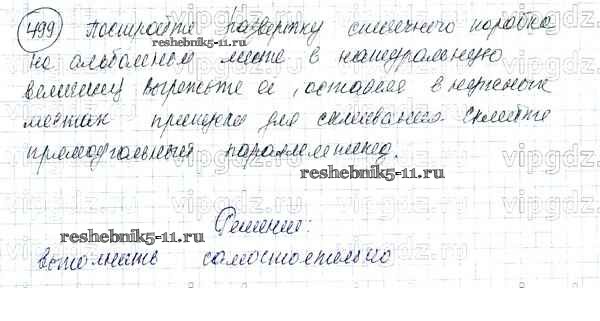 499 Постройте развертку спичечного коробка
на альбомном листе в натуральную
величину вырежьте ее, оставив в нужных
местах припуски для склеивания склейте
прямоугольный параллелепипед.
Решение:
выполнить самостоятельно
reshebnik5-11.ru
reshebnik5-11.ru
reshebnik5-11.ru
vipgdz.ru